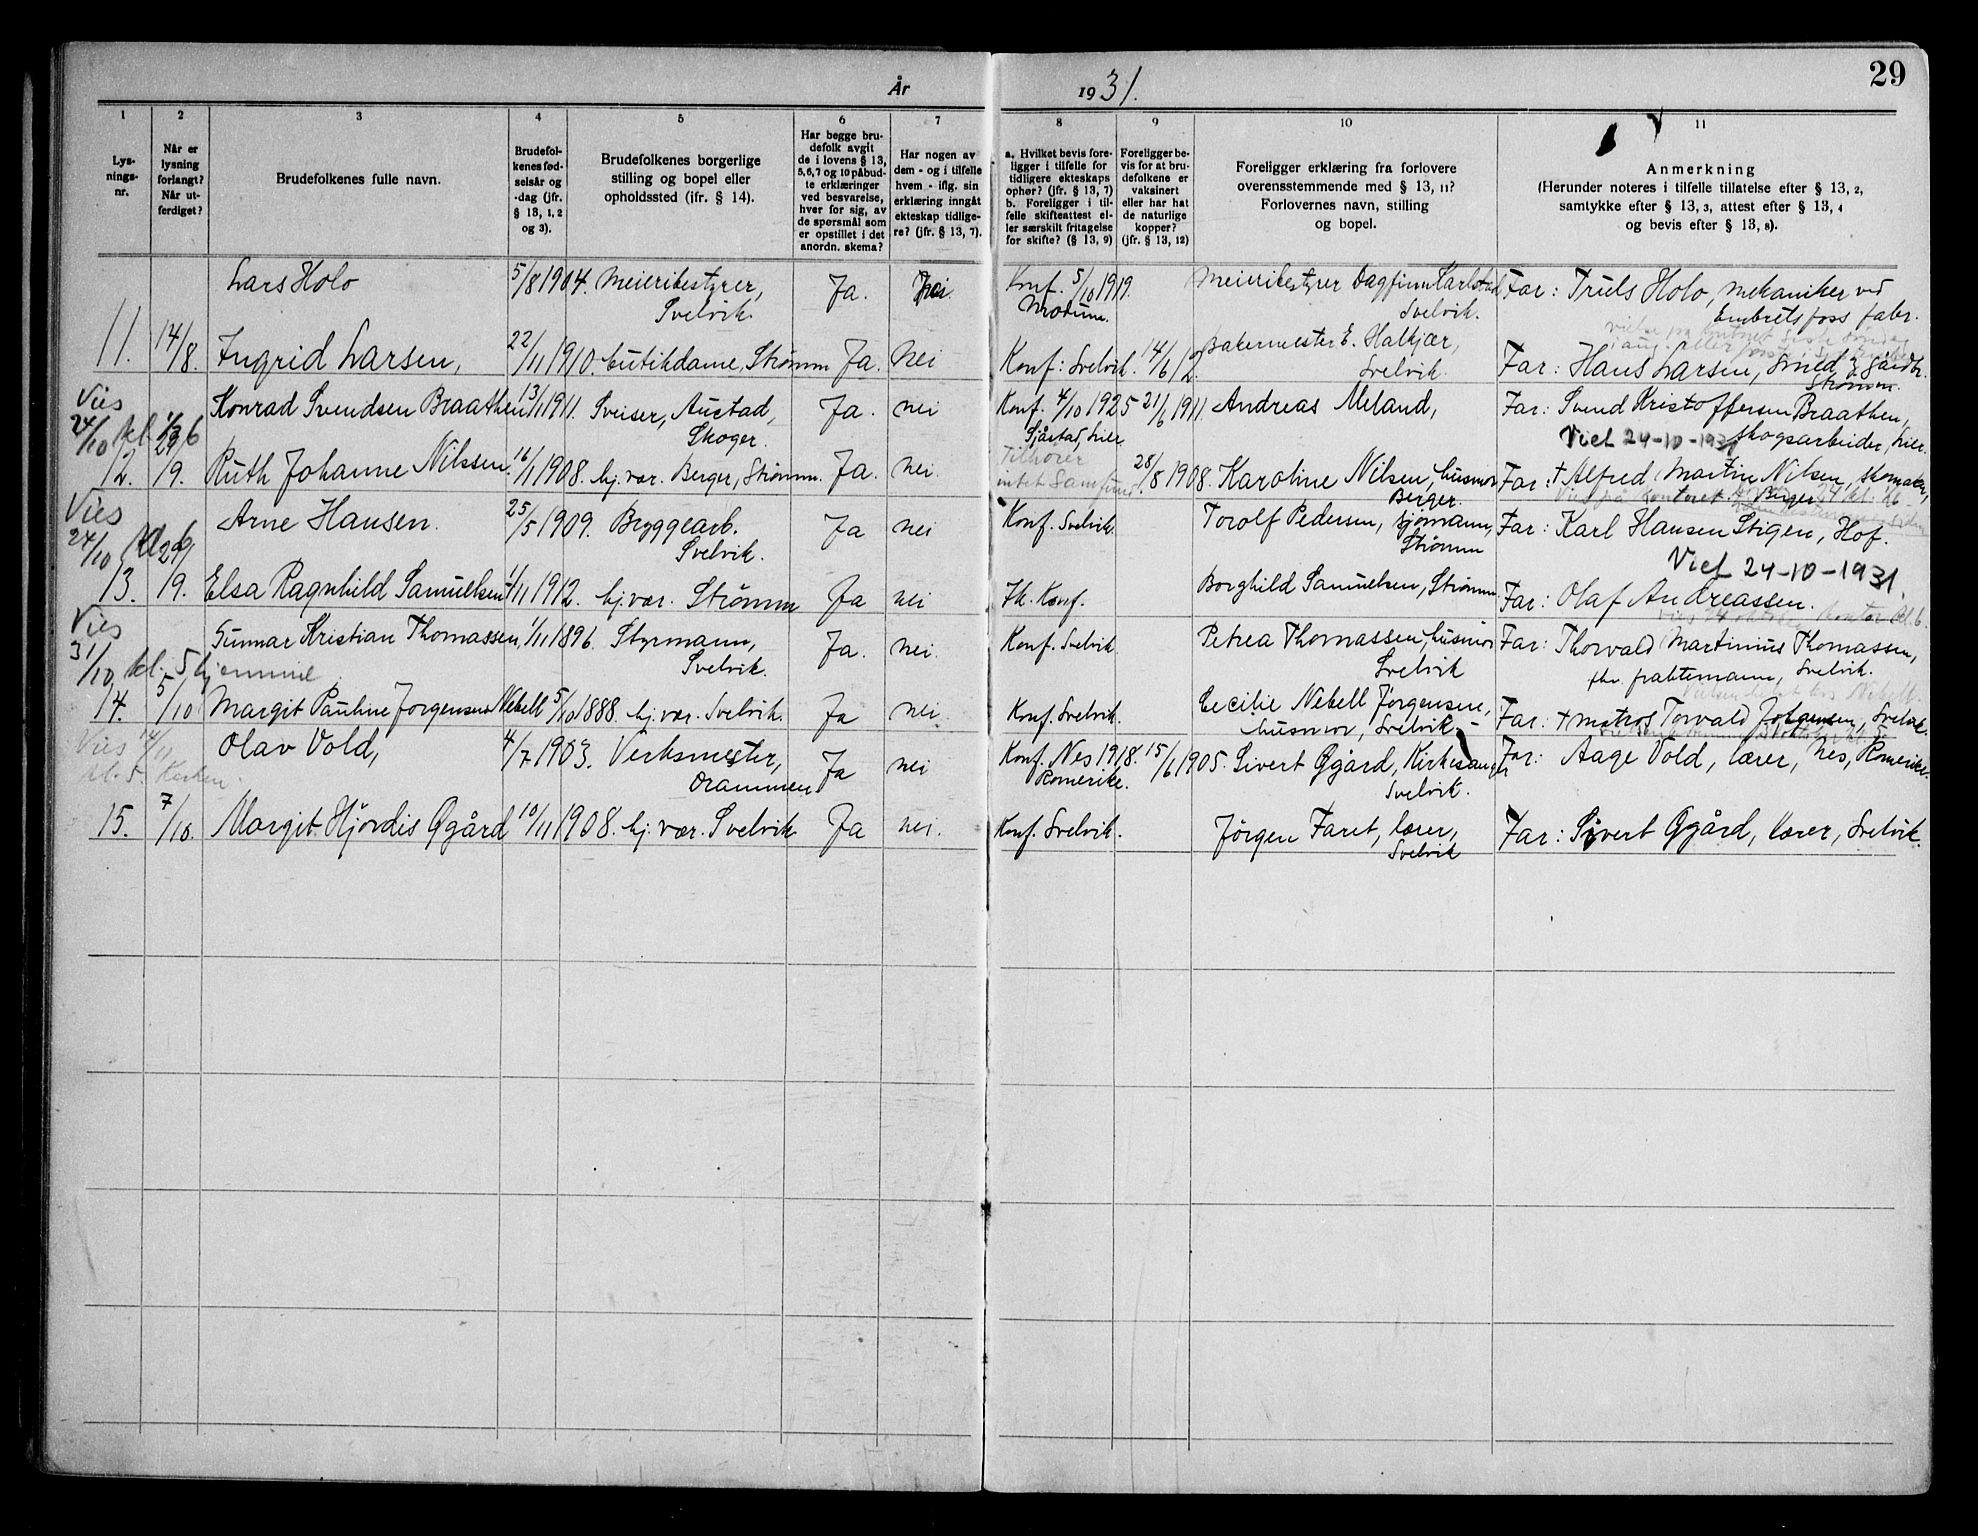 År 1931.
29
1 2 3 4 5 6 7 8 9 10 11
Lys-
nings-
nr.
Når er
lysning
forlangt?
Når ut-
ferdiget?
Brudefolkenes fulle navn.
Brudefol-
kenes fød-
selsår og
-dag (jfr.
§ 13, 1, 2
og 3).
Brudefolkenes borgerlige
stilling og bopel eller
opholdssted (jfr. § 14).
Har begge bru-
defolk avgit
de i lovens § 13,
5,6,7 og 10 påbud-
te erklæringer
ved besvarelse,
hver for sig, av
de spørsmål som
er opstillet i det
anordn. skema?
Har nogen av
dem - og i tilfelle
hvem - iflg. sin
erklæring inngått
ekteskap tidlige-
re? (jfr. § 13, 7).
a. Hvilket bevis fore-
ligger i tilfelle for
tidligere ekteskaps
ophør? (jfr. § 13, 7)
b. Foreligger i til-
felle skifteattest el-
ler særskilt fritagelse
for skifte? (§ 13, 9)
Foreligger be-
vis for at bru-
defolkene er
vaksinert
eller har hat
de naturlige
kopper?
(jfr. § 13, 12)
Foreligger erklæring fra forlovere
overensstemmende med § 13, 11?
Forlovernes navn, stilling
og bopel.
Anmerkning
(Herunder noteres i tilfelle tillatelse efter § 13, 2,
samtykke efter § 13, 3, attest efter § 13, 4
og bevis efter § 13, 8).
Lars Holo 5/8 1904. Meieribestyrer, Ja. Nei Konf. 5/10 1919. Meieribestyrer Dagfinn Karlstad Far: Truls Holo, mekaniker ved
Svelvik. Modum. Svelvik. Embretsfoss fabr.
11. 14/8. Ingrid Larsen, 22/11 1910. butikdame, Strømm Ja. nei Konf: Svelvik. 14/6 12. Bakermester E. Halkjær, Far: Hans Larsen, smed & gårdbr.
Svelvik. Strømm.
Vies
24/10 kl. 6 Konrad Svendsen Braathen 13/11 1911. Sveiser, Austad, Ja. nei Konf. 4/10 1925 21/6 1911. Andreas Meland, Far: Svend Kristoffersen Braathen,
Skoger. Sjåstad, Lier. Viet 24-10-1931 skogsarbeider, Lier.
12. 19. Ruth Johanne Nilssen 16/1 1908. hj. vær. Berger, Strømm. Ja. nei. Tilhører 28/8 1908. Karoline Nilsen, husmor Far: † Alfred Martin Nilsen, skomaker,
intet Samfund. Berger. Berger
Vies
24/10 kl. 6 Arne Hansen. 25/5 1909. Bryggearb. Ja nei Konf. Svelvik. Torolf Pedersen, sjømann, Far: Karl Hansen Stigen, Hof.
Svelvik. Strømm Viet 24-10-1931.
13. 19. Elsa Ragnhild Samuelsen 1/11 1912. hj. vær. Strømm Ja nei Ik. Konf. Borghild Samuelsen, Strømm Far: Olaf Andreassen.
Vies
31/10 kl. 5 hjemme Gunnar Kristian Thomassen, 1/11 1896. Styrmann, Ja. nei. Konf. Svelvik. Petrea Thomassen, husmor Far: Thorvald Martinius Thomassen,
Svelvik. Svelvik fhv. fraktemann, Svelvik.
14. 5/10 Margit Pauline Jørgensen Nebell 5/10 1888. hj. vær. Svelvik. Ja nei. Konf. Svelvik. Cecilie Nebell Jørgensen, Far: † matros Torvald Johansen, Svelvik.
husmor, Svelvik.
Vies 14/11
kl. 5 Kirken. Olav Vold, 4/7 1903. Verksmester, Ja nei Konf. Nes 1918. 15/6 1905. Sivert Øgård, Kirkesanger Far: Aage Vold, lærer, Nes, Romerike.
Drammen Romerike. Svelvik.
15. 7/10. Margit Hjørdis Øgård 10/11 1908. hj. vær. Svelvik Ja nei. Konf. Svelvik. Jørgen Faret, lærer, Far: Sivert Øgård, lærer, Svelvik.
Svelvik